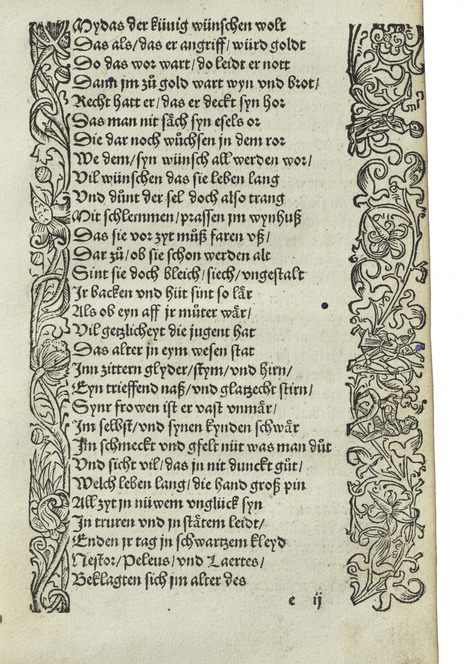 Mydas der künig wünschen wolt
Das als/das er angriff/würd goldt
Do das wor wart/do leidt er nott
Dann jm zuͦ gold wart wyn vnd brot/
Recht hatt er/das er deckt syn hor
Das man nit saͤch syn esels or
Die dar noch wuͦchsen in dem ror
We dem/syn wünsch all werden wor/
Vil wünschen das sie leben lang
Vnd duͤnt der sel doch also trang
Mit schlemmen/prassen jm wynhuß
Das sie vor zyt muͤß faren vß/
Dar zuͦ/ob sie schon werden alt
Sint sie doch bleich/siech/vngestalt
Jr backen vnd hüt sint so laͤr
Als ob eyn aff jr muͦter waͤr/
Vil getzlicheyt die jugent hat
Das alter jn eym wesen stat
Jnn zittern glyder/stym/vnd hirn/
Eyn trieffend naß/vnd glatzecht stirn/
Synr frowen ist er vast vnmaͤr/
Jm selbst/vnd synen kynden schwaͤr
Jm schmeckt vnd gfelt nüt was man duͦt
Vnd sicht vil/das jn nit dunckt guͦt/
Welch leben lang/die hand groß pin
All zyt jn nüwem vnglück syn
Jn truren vnd jn staͤtem leidt/
Enden jr tag jn schwartzem kleyd
Nestor/Peleus/vnd Laertes/
Beklagten sich jm alter des
e ij